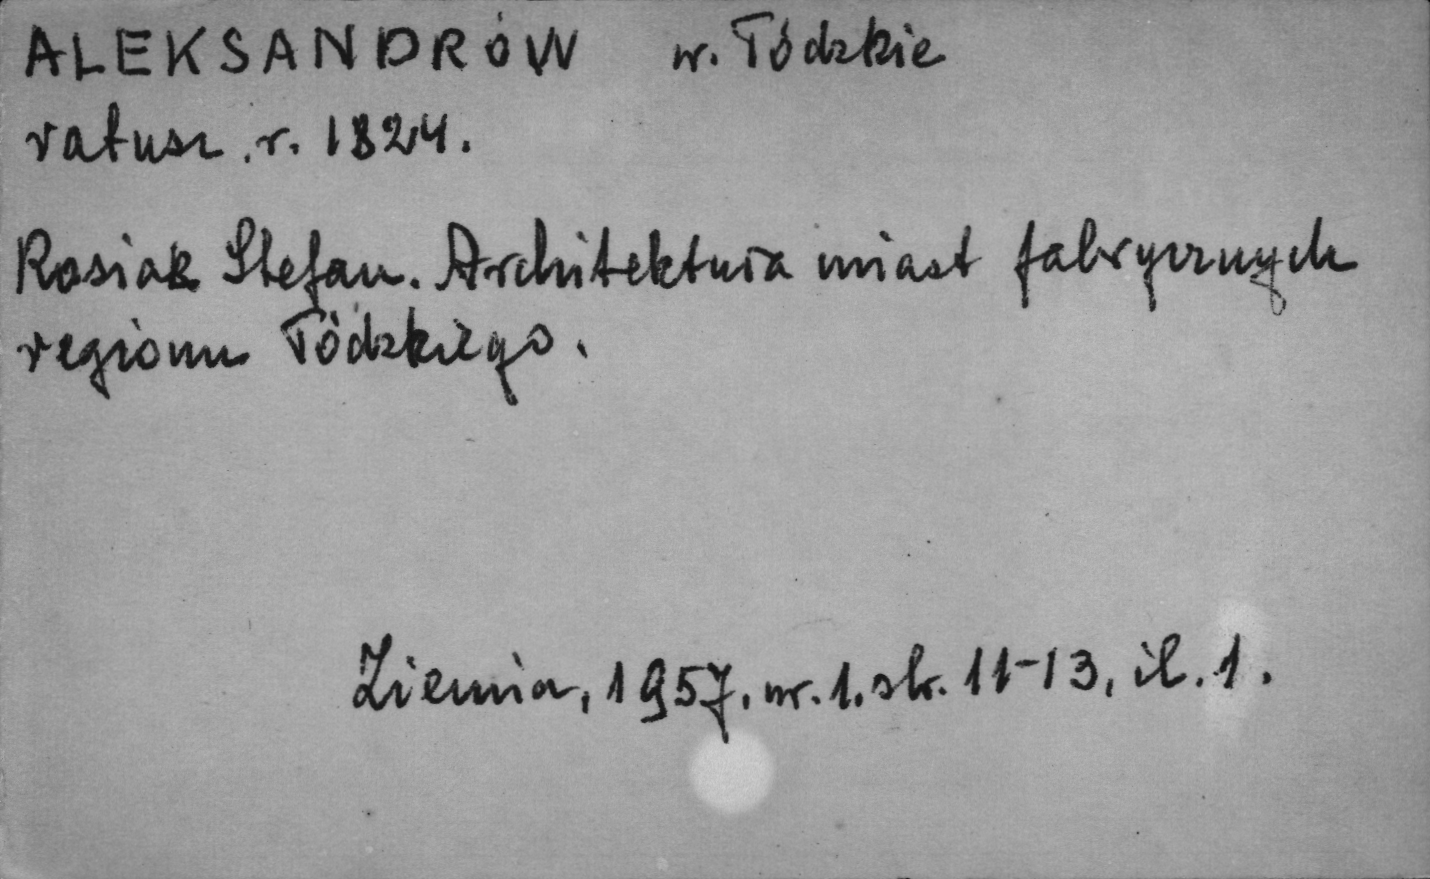 ALEKSANDRÓW w. Łódzkie
ratusz, r. 1824.
Rosiak Stefan. Architektura miast fabrycznych
regionu Łódzkiego.
Ziemia, 1957, nr. 1. str. 11-13, il. 1.